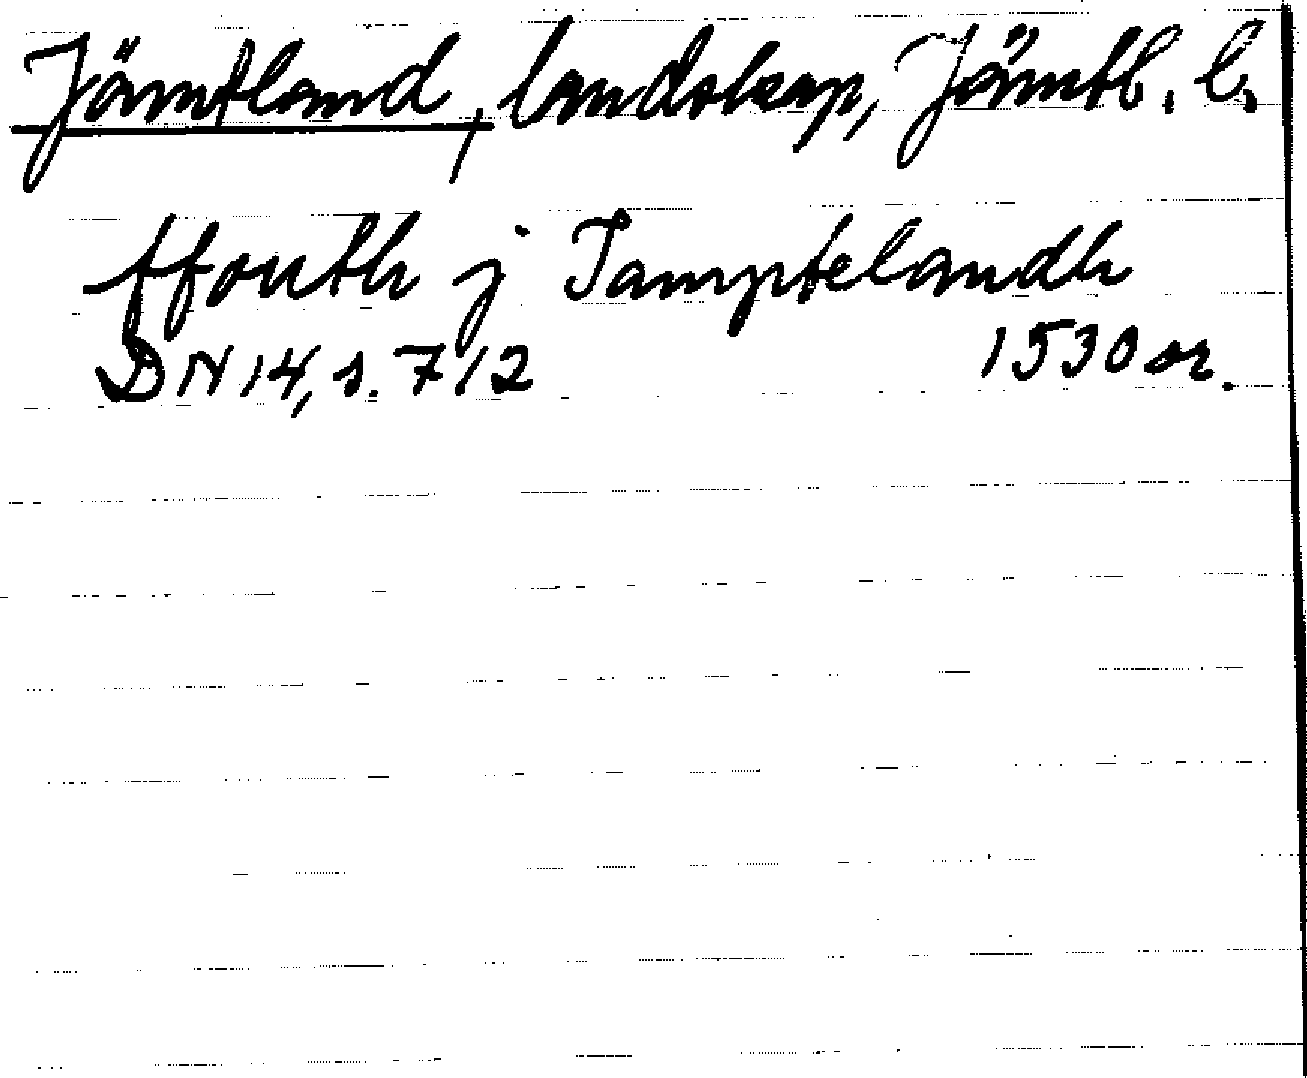 Jämtland, landskap, Jämtl. l.
ffouth j Jamptelandh
DN 14, s. 712 1530 or.